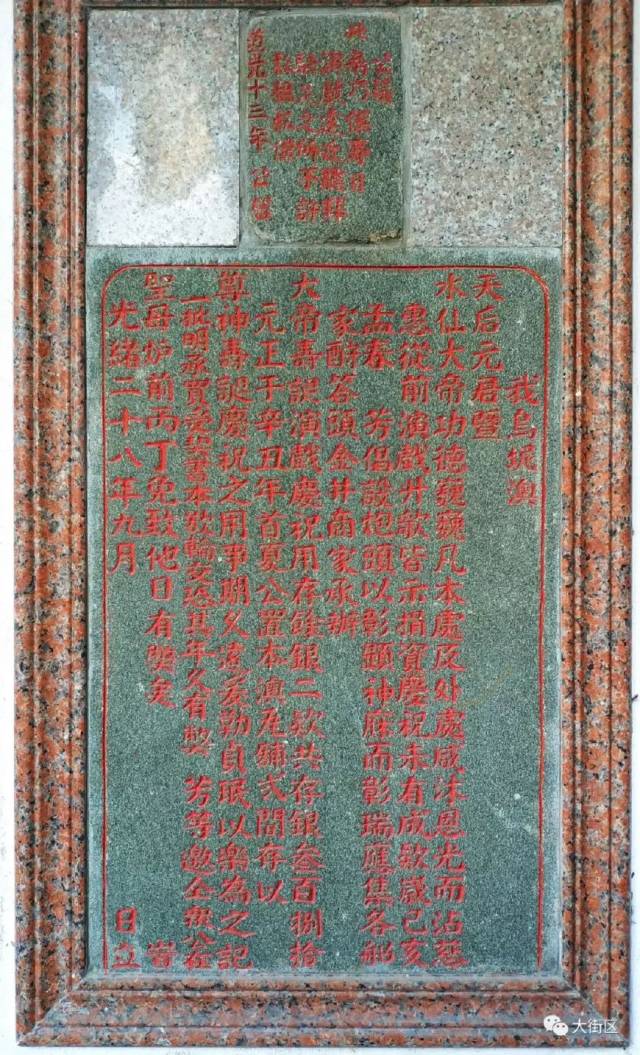 公議
道光十三年 公啓
我烏坭澳
天后元君暨
水仙大帝功德巍巍凡本處及外處咸沐恩光而沾慈
惠從前演戲丹歘皆示捐資慶祝未有成歘歲己亥
孟春 芳倡設炮頭以彰顯神庥而彰瑞應集各船
家酧答頭金井商家承辦
大帝壽誕演戲慶祝用存餘銀二欵共存銀叁百捌拾
元正于辛丑年首夏公置本澳瓦鋪弍間存以
尊神壽誕慶祝之用事関乂遠爰勒貞珉以樂為之記
一批明承買受契書本欲輪交恐其年久有弊 芳等邀仝眾公在
聖母炉前丙丁免致他日有弊矣
光緒二十八年九月 日立
大街区